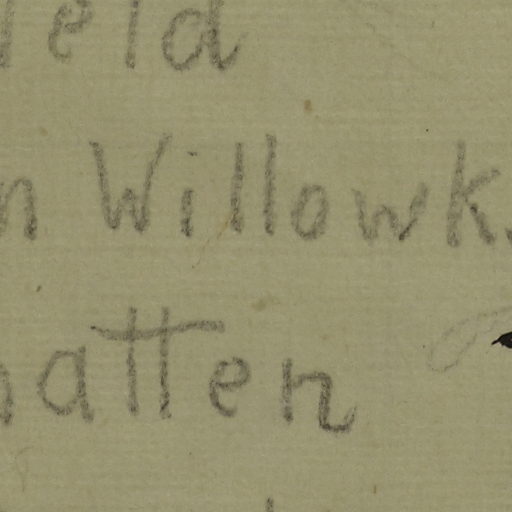 ield
n Willowk.
hatten